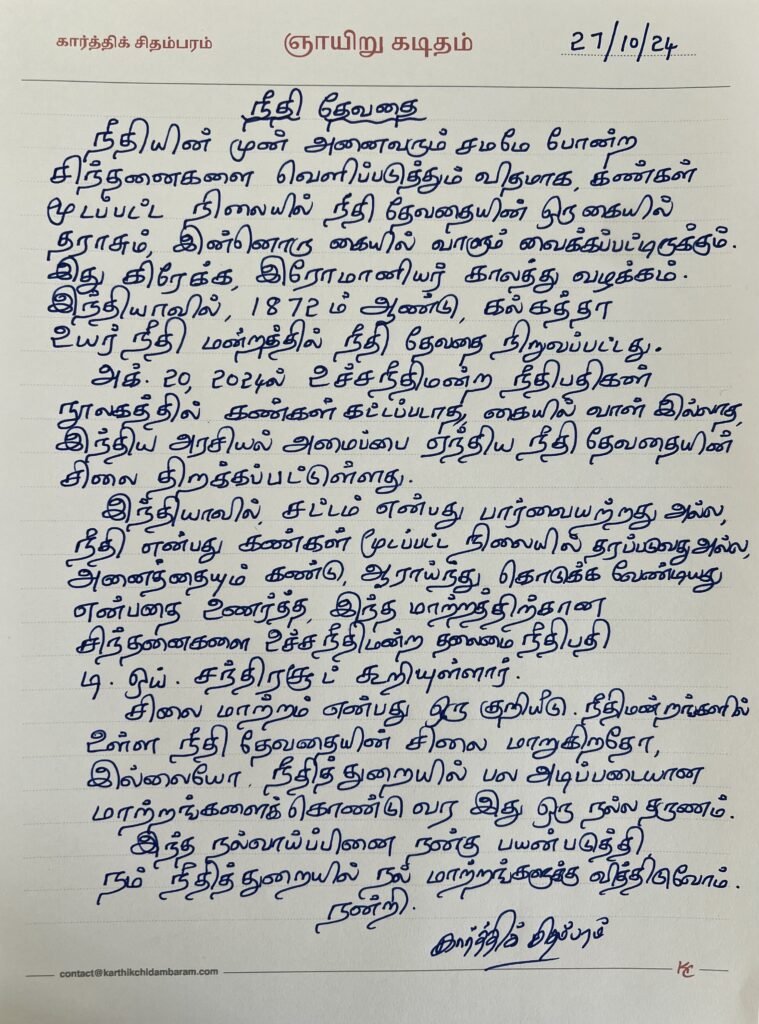 கார்த்திக் சிதம்பரம்
ஞாயிறு கடிதம்
27/10/24
நீதி தேவதை
நீதியின் முன் அனைவரும் சமமே போன்ற
சிந்தனைகளை வெளிப்படுத்தும் விதமாக, கண்கள்
மூடப்பட்ட நிலையில் நீதி தேவதையின் ஒரு கையில்
தராசும், இன்னொரு கையில் வாளும் வைக்கப்பட்டிருக்கும்.
இது கிரேக்க, இரோமானியர் காலத்து வழக்கம்.
இந்தியாவில், 1872 ம் ஆண்டு, கல்கத்தா
உயர் நீதி மன்றத்தில் நீதி தேவதை நிறுவப்பட்டது.
அக். 20, 2024ல் உச்சநீதிமன்ற நீதிபதிகள்
நூலகத்தில் கண்கள் கட்டப்படாத, கையில் வாள் இல்லாத,
இந்திய அரசியல் அமைப்பை ஏந்திய நீதி தேவதையின்
சிலை திறக்கப்பட்டுள்ளது.
இந்தியாவில், சட்டம் என்பது பார்வையற்றது அல்ல,
நீதி என்பது கண்கள் மூடப்பட்ட நிலையில் தரப்படுவது அல்ல,
அனைத்தையும் கண்டு, ஆராய்ந்து கொடுக்க வேண்டியது
என்பதை உணர்த்த, இந்த மாற்றத்திற்கான
சிந்தனைகளை உச்சநீதிமன்ற தலைமை நீதிபதி
டி. ஒய். சந்திரசூட் கூறியுள்ளார்.
சிலை மாற்றம் என்பது ஒரு குறியீடு. நீதிமன்றங்களில்
உள்ள நீதி தேவதையின் சிலை மாறுகிறதோ,
இல்லையோ, நீதித் துறையில் பல அடிப்படையான
மாற்றங்களைக் கொண்டு வர இது ஒரு நல்ல தருணம்.
இந்த நல்வாய்ப்பினை நன்கு பயன்படுத்தி,
நம் நீதித் துறையில் நல் மாற்றங்களுக்கு வித்திடுவோம்.
நன்றி.
கார்த்திக் சிதம்பரம்
contact@karthikchidambaram.com
KC